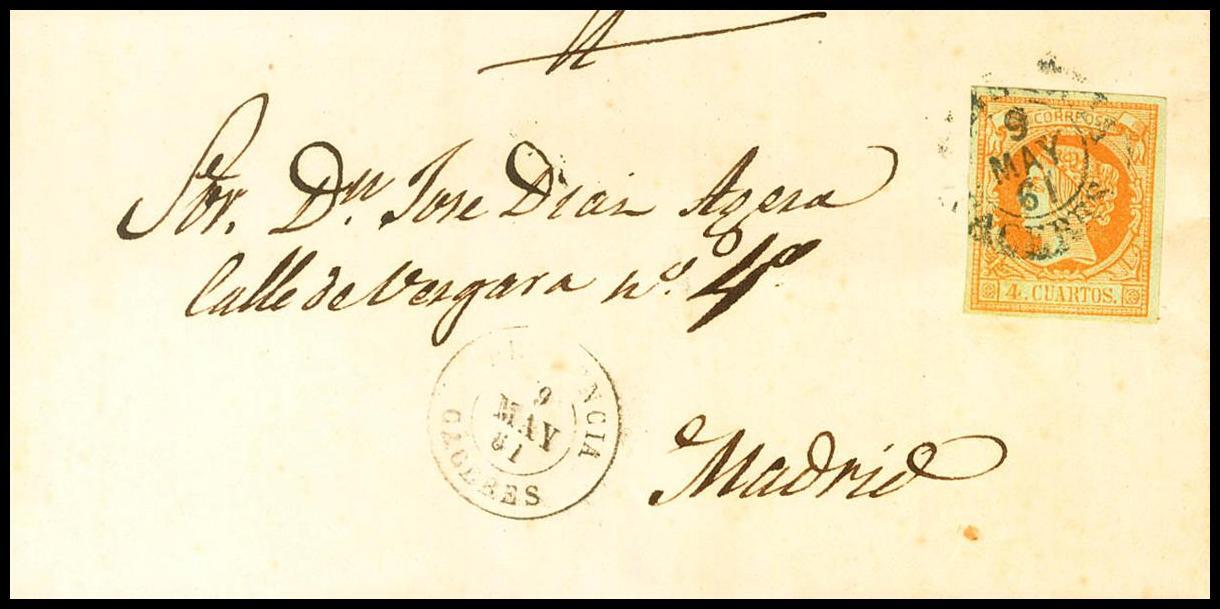 Sor. Dn Jose Diaz Agera
Calle de Vergara nº. 4º
Madrid
CORREOS
9
MAY
61
4. CUARTOS.
9
MAY
61
CACERES